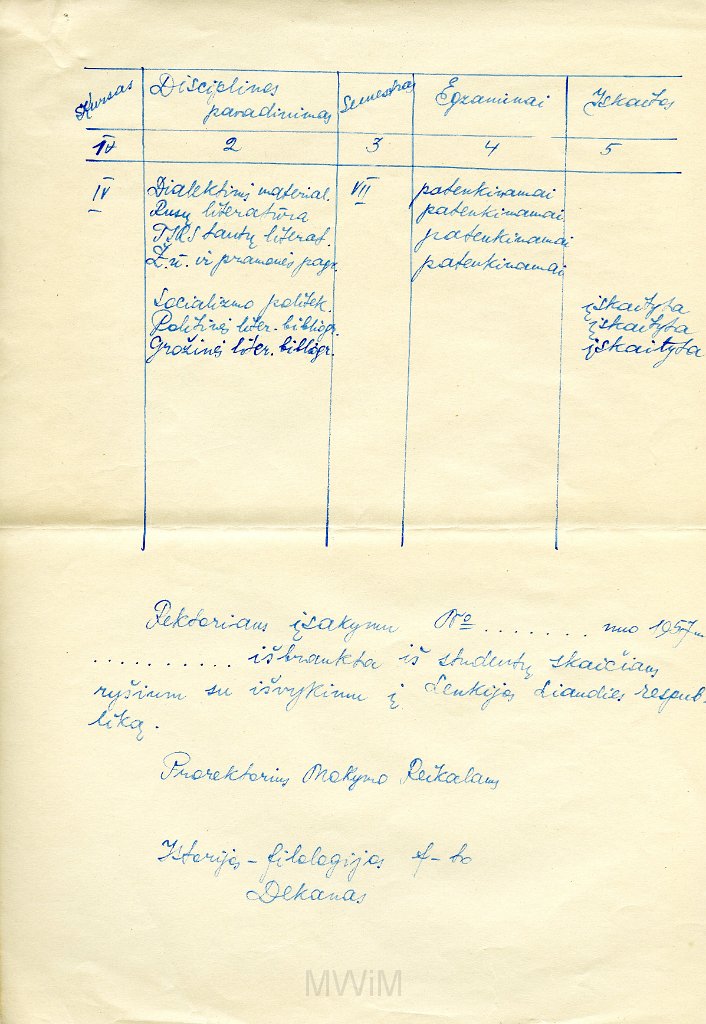 Kursas Disciplinos pavadinimas Semestras Egzaminai Įskaitos
IV 2 3 4 5
IV Dialektinis material. VII patenkinamai
Rusų literatūra patenkinamai
TSRS tautų literat. patenkinamai
Ž.ū. ir pramonės pagr. patenkinamai
Socializmo politek. įskaityta
Politinės liter. bibliogr. įskaityta
Grožinės liter. bibliogr. įskaityta
Rektoriaus įsakymu № ........ nuo 1957 m
.......... išbraukta iš studentų skaičiaus
ryšium su išvykimu į Lenkijos Liaudies respub-
liką.
Prorektorius Mokymo Reikalams
Istorijos-filologijos f-to
Dekanas
MWiM